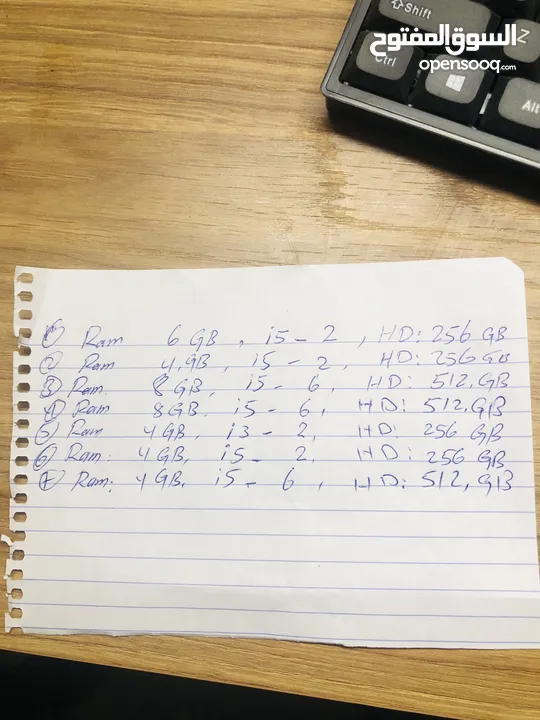 السوق المفتوح
opensooq.com
Shift
Z
Ctrl
Alt
① Ram 6 GB, i5 - 2, HD: 256 GB
② Ram 4,GB, i5 - 2, HD: 256 GB
③ Ram. 8 GB, i5 - 6, HD: 512,GB
④ Ram 8 GB. i5 - 6, HD: 512,GB
⑤ Ram 4 GB, i3 - 2, HD: 256 GB
⑥ Ram: 4 GB, i5 - 2. HD: 256 GB
⑦ Ram: 4 GB. i5 - 6, HD: 512,GB